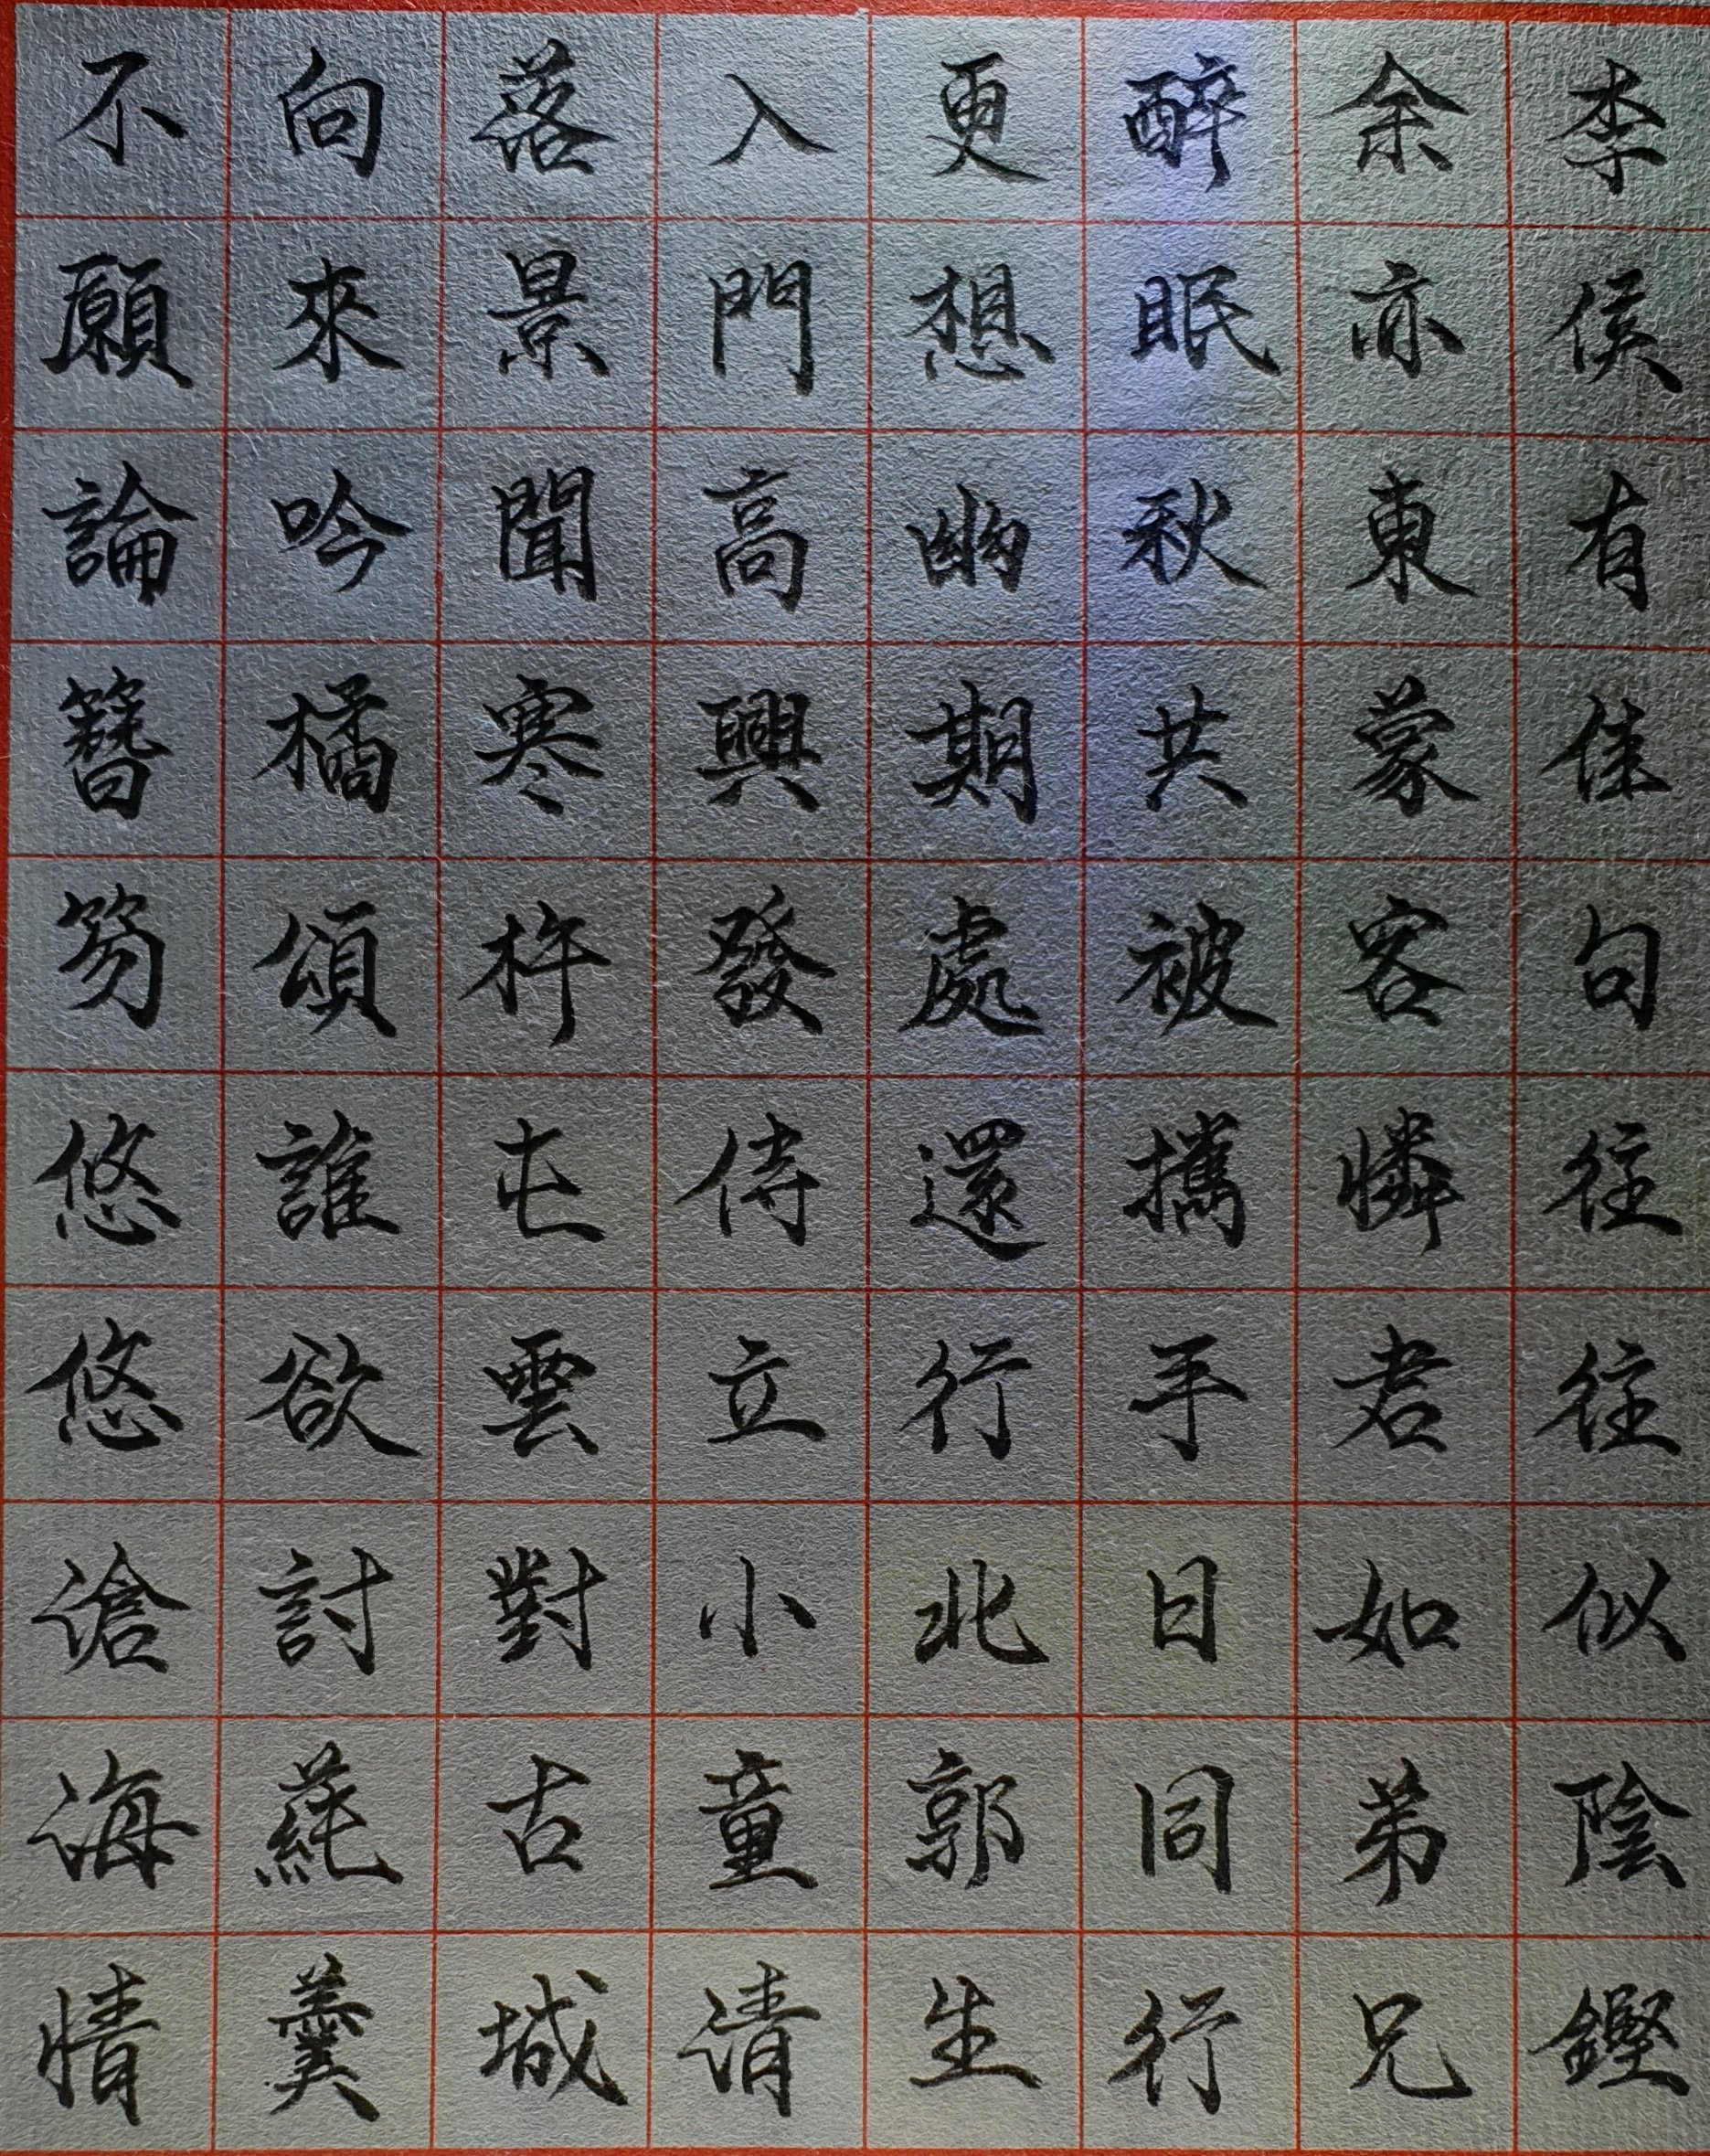 李侯有佳句往往似陰鏗
余亦東蒙客憐君如弟兄
醉眠秋共被攜手日同行
更想幽期處還行北郭生
入門高興發侍立小童清
落景聞寒杵屯雲對古城
向來吟橘頌誰欲討蒓羹
不願論簪笏悠悠滄海情